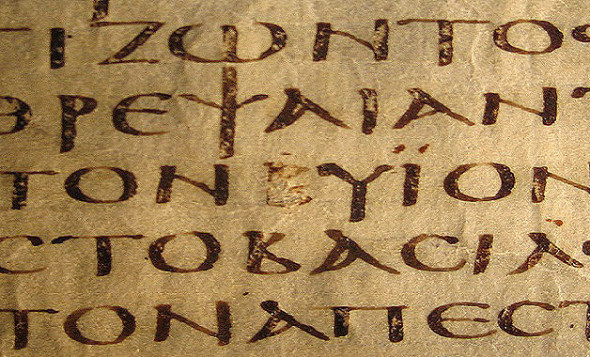 ΤΙΖΩΝΤΟC
ΘΡΕΨΑΙΑΝΤ
ΤΟΝ ΥΪΟΝ
CΤΟΒΑCΙΛ
ΤΟΝΑΠΕCΤ